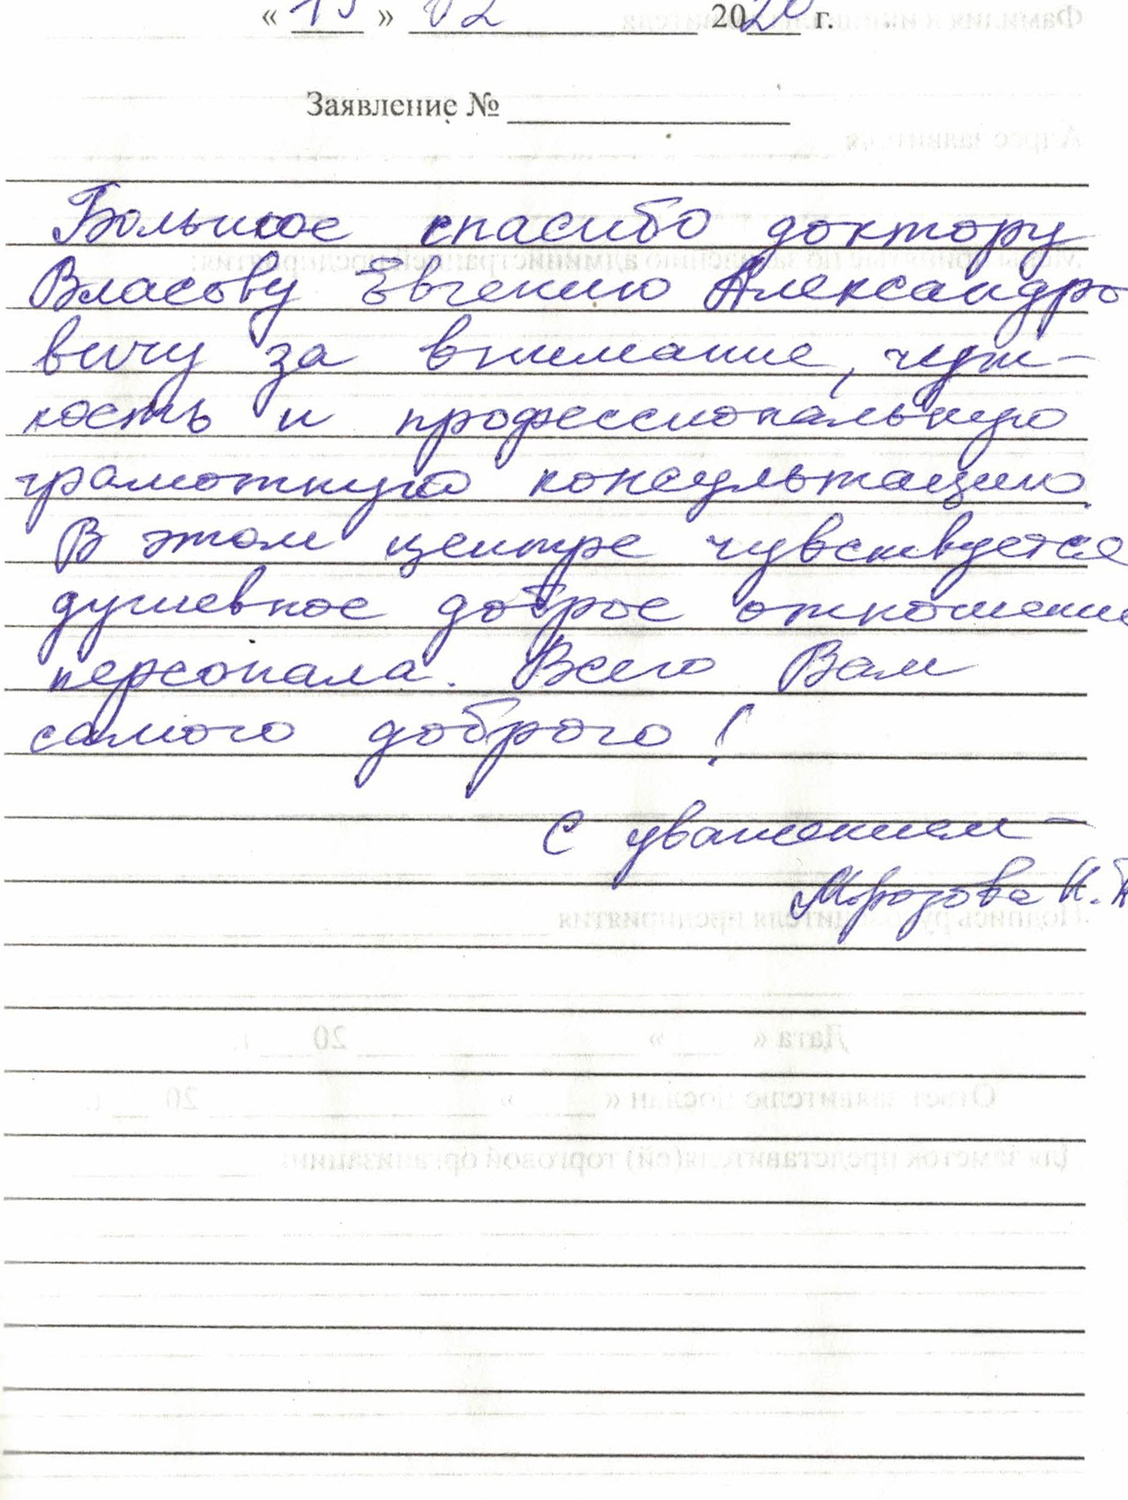 « 13 » 02 2020 г.
Заявление №
Большое спасибо доктору
Власову Евгению Александро
вичу за внимание, чут-
кость и профессиональную
грамотную консультацию.
В этом центре чувствуется
душевное доброе отношение
персонала. Всего Вам
самого доброго!
С уважением –
Морозова Н.